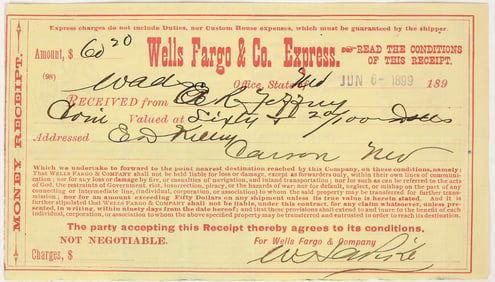 Express charges do not include Duties, nor Custom House expenses, which must be guaranteed by the shipper.
MONEY RECEIPT.
Amount, $ 60 20
Wells Fargo & Co. Express.
READ THE CONDITIONS
OF THIS RECEIPT.
(98)
Office, State of Nev
JUN 6- 1899
189
RECEIVED from
Coin Valued at Sixty & 20/100 Dolls
Addressed Ed Killeny
Carson Nev
Which we undertake to forward to the point nearest destination reached by this Company, on these conditions, namely:
That WELLS FARGO & COMPANY shall not be held liable for loss or damage, except as forwarders only, within their own lines of communication;
nor for any loss or damage by fire, or casualties of navigation, and inland transportation; nor for such as can be referred to the acts
of God, the restraints of Government, riot, insurrection, piracy, or the hazards of war; nor for default, neglect, or mishap on the part of any
connecting or intermediate line, individual, corporation, or association to whom the said property may be transferred for further transmission;
nor for an amount exceeding Fifty Dollars on any shipment unless its true value is herein stated. And it is
further stipulated that WELLS FARGO & COMPANY shall not be liable, under this contract, for any claim whatsoever, unless presented,
in writing, within ninety days from the date hereof; and that these provisions shall extend to and inure to the benefit of each
individual, corporation, or association to whom the above specified property may be transferred and entrusted in order to reach its destination.
The party accepting this Receipt thereby agrees to its conditions.
NOT NEGOTIABLE.
For Wells Fargo & Company
Charges, $